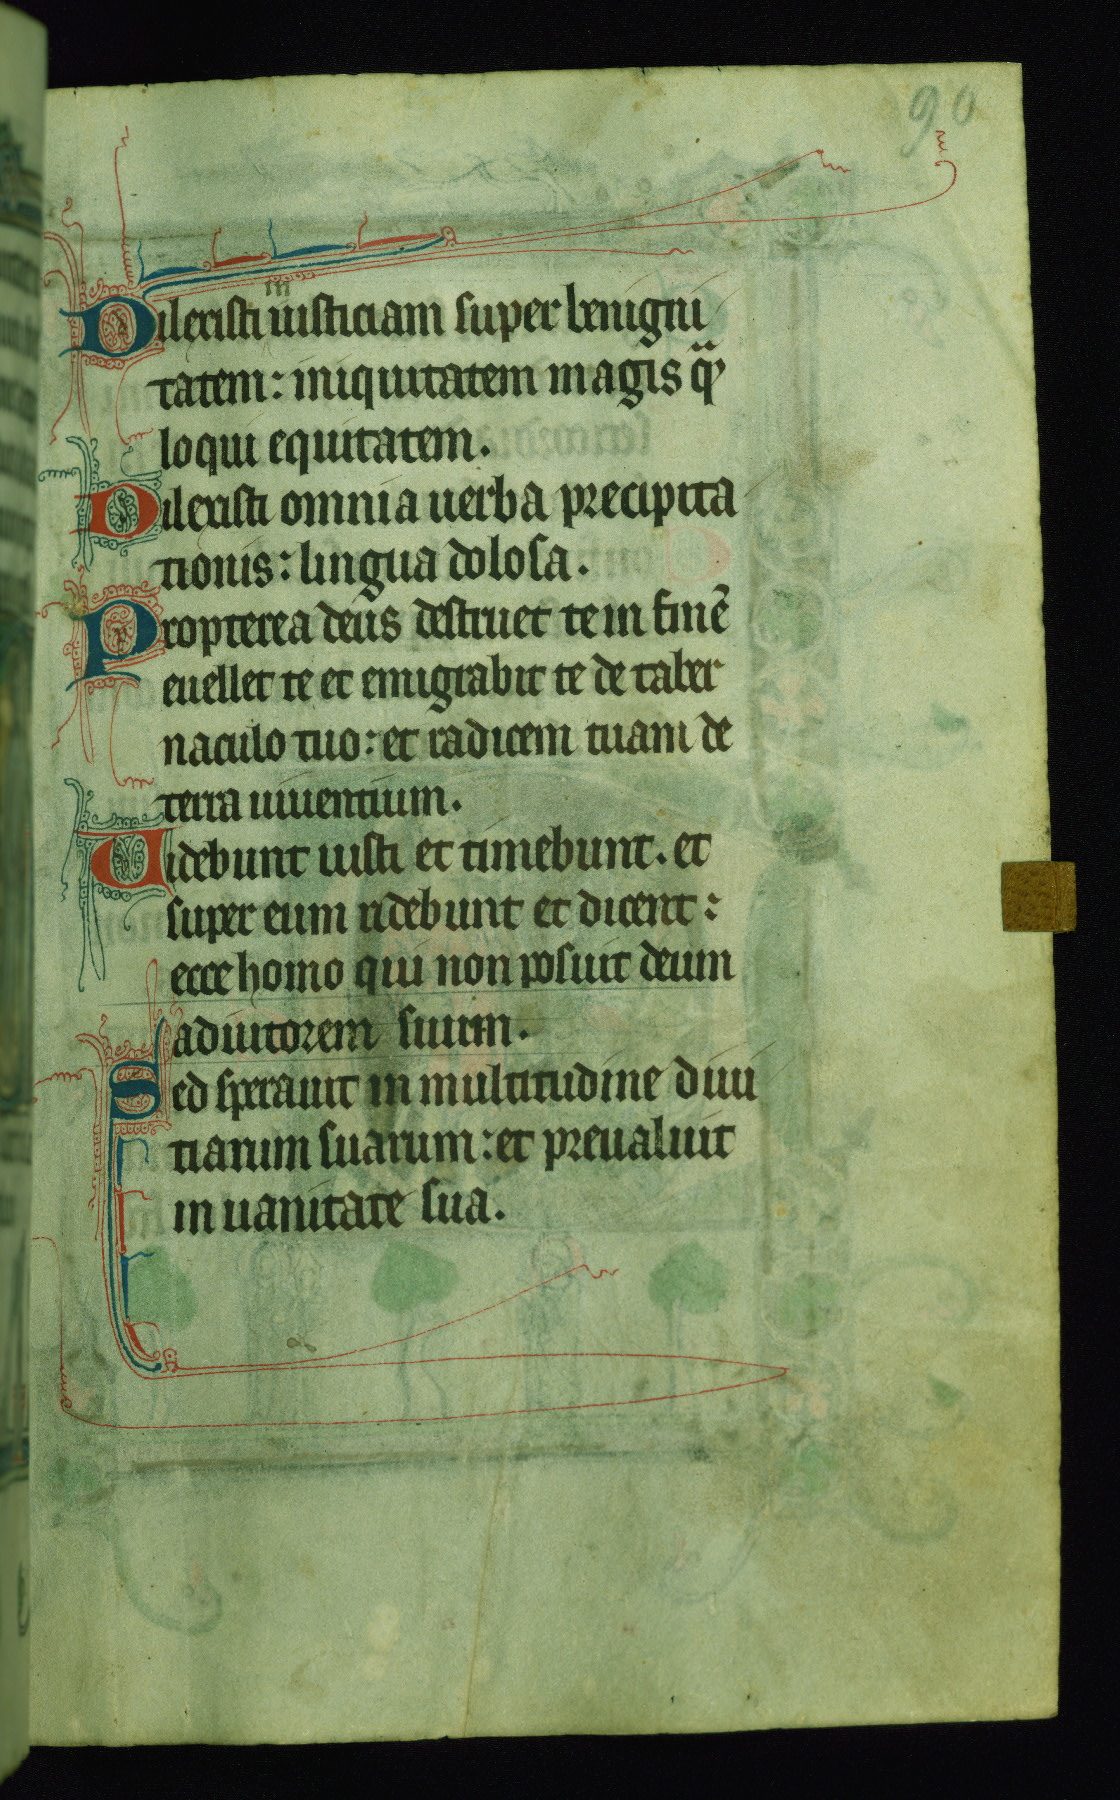 90
in
Dilexisti iusticiam super benigni
tatem: iniquitatem magis q̃
loqui equitatem.
Dilexisti omnia uerba precipita
tionis: lingua dolosa.
Propterea deus destruet te in finẽ
euellet te et emigrabit te de taber
naculo tuo: et radicem tuam de
terra uiuentium.
Uidebunt iusti et timebunt. et
super eum ridebunt et dicent:
ecce homo qui non posuit deum
adiutorem suum.
Sed sperauit in multitudine diui
tiarum suarum: et preualuit
in uanitate sua.